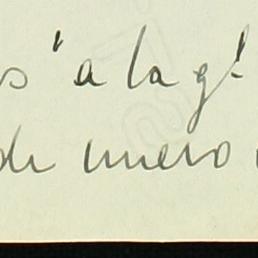 s "a la g!
de nuevo